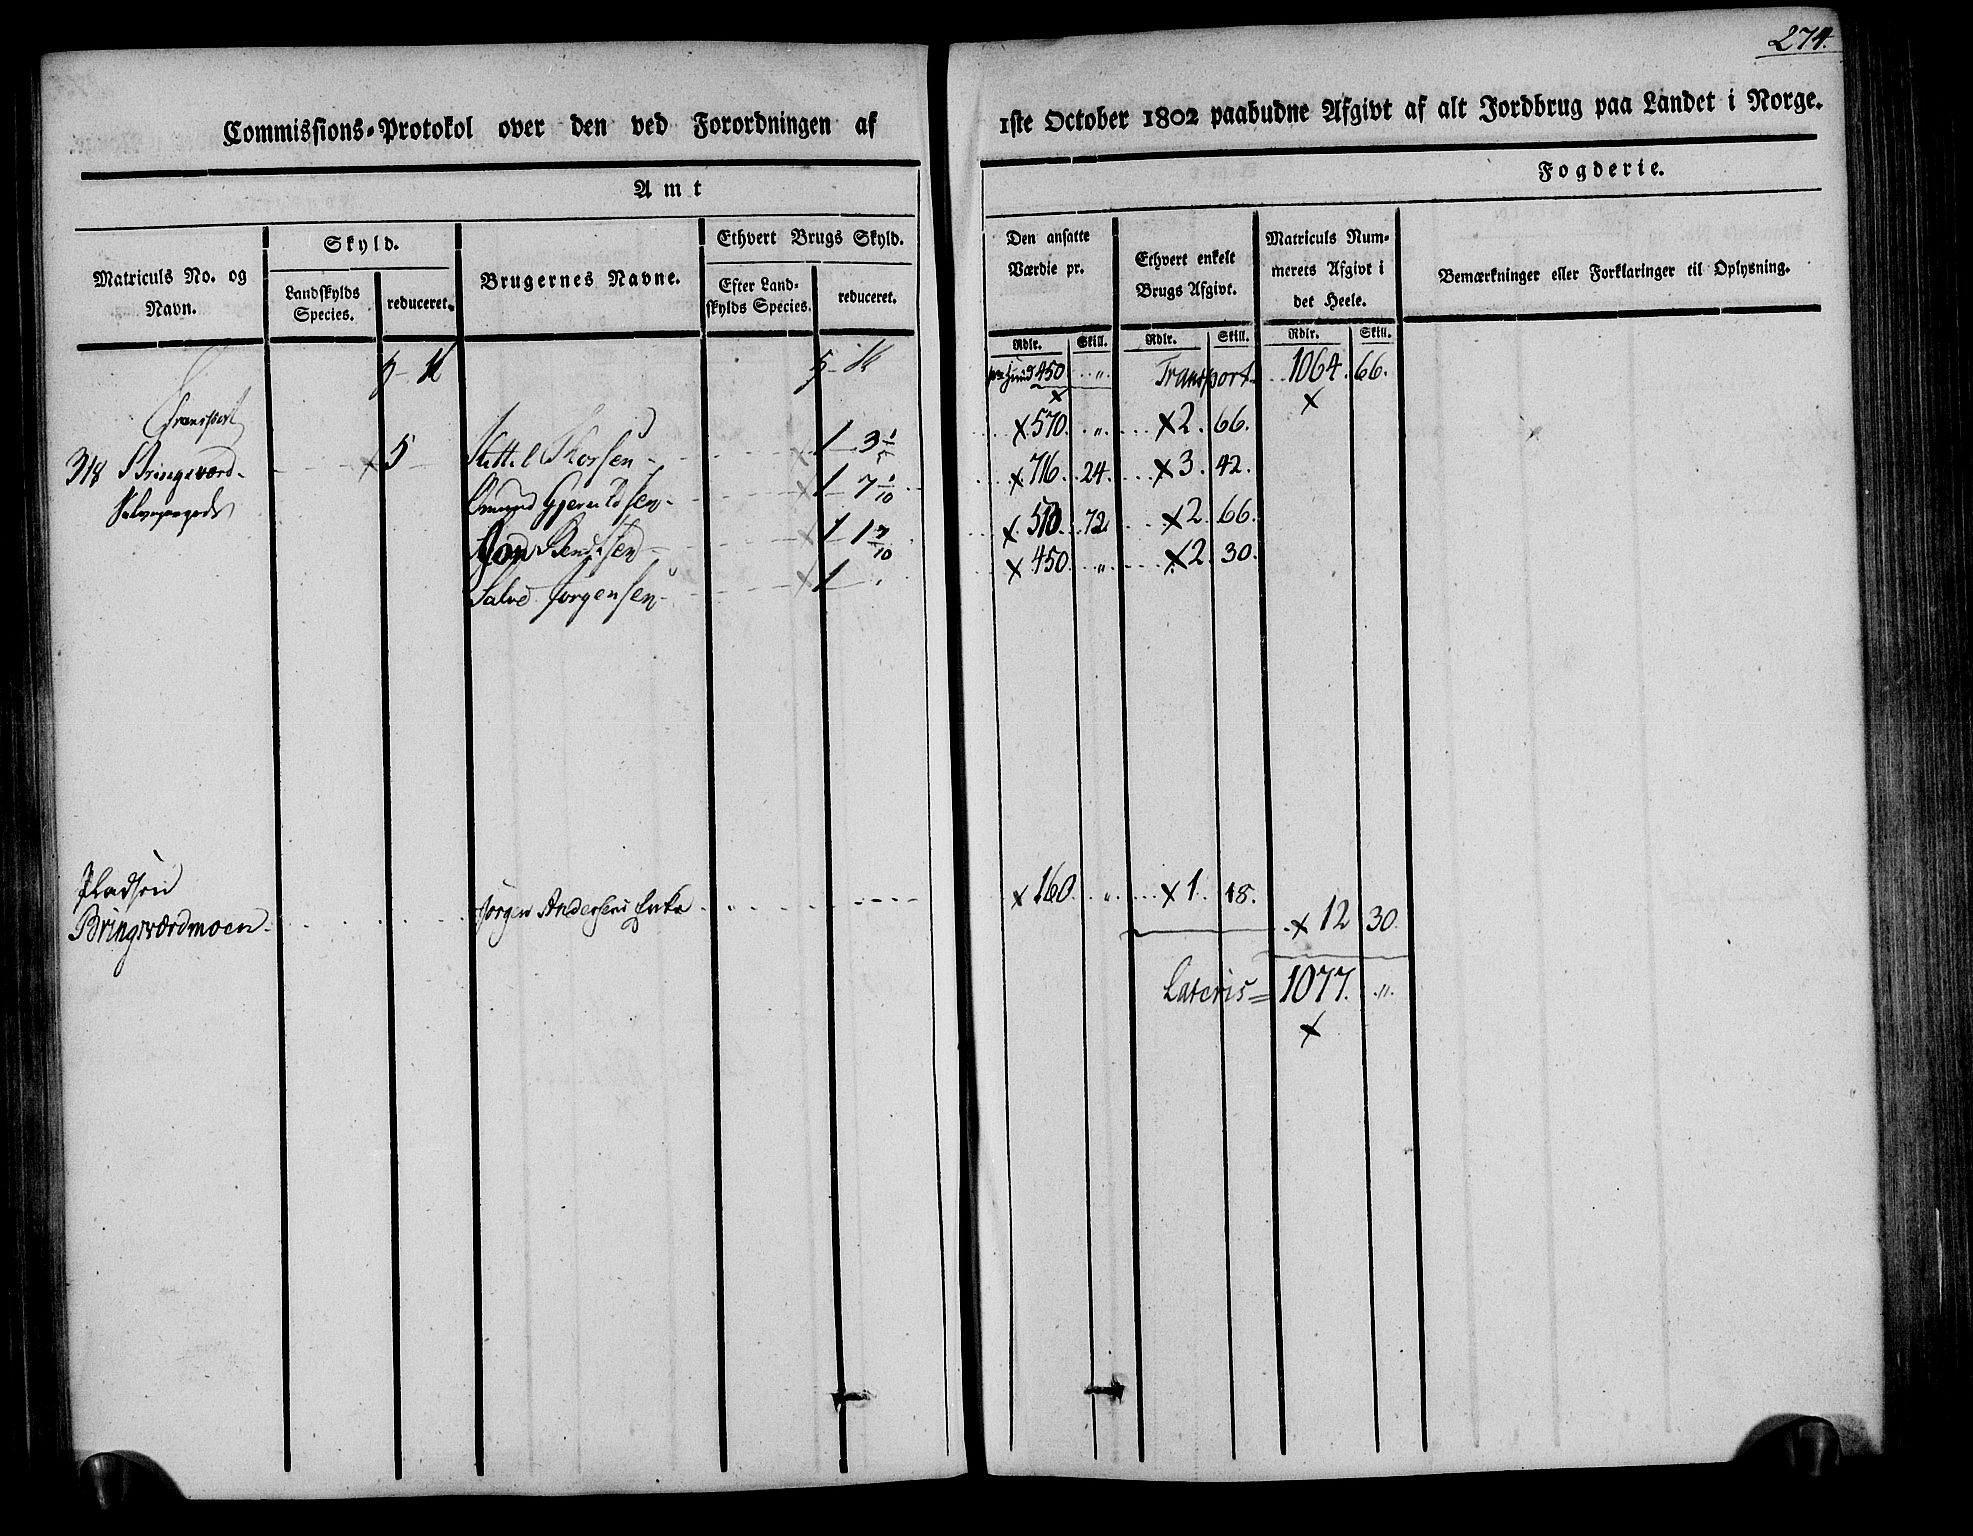 274.
Commissions-Protokol over den ved Forordningen af 1ste October 1802 paabudne Afgivt af alt Jordbrug paa Landet i Norge.
Amt
Fogderie.
Matriculs No. og Navn.
Skyld.
Landskylds Species.
reduceret.
Brugernes Navne.
Ethvert Brugs Skyld.
Efter Land-skylds Species.
reduceret.
Den ansatte Værdie pr.
Rdlr. Skill.
Ethvert enkelt Brugs Afgivt.
Rdlr. Skill.
Matriculs Num-merets Afgivt i det Heele.
Rdlr. Skill.
Bemærkninger eller Forklaringer til Oplysning.
450 " Transport 1064. 66.
Transport
318 Bringsværd 5 Kittel Thorsen 1 3 1/5 570. " 2. 66.
Gjeruldsen 1 7 1/10 716. 24. 3. 42.
Jon Bendtsen 1 1 7/10 510. 72. 2. 66.
Salve Jørgensen 1 450. " 2. 30.
Pladsen
Bringsværdmoen Jørgen Andersens Enke 160. " 1. 18.
12 30.
Lateris = 1077. "